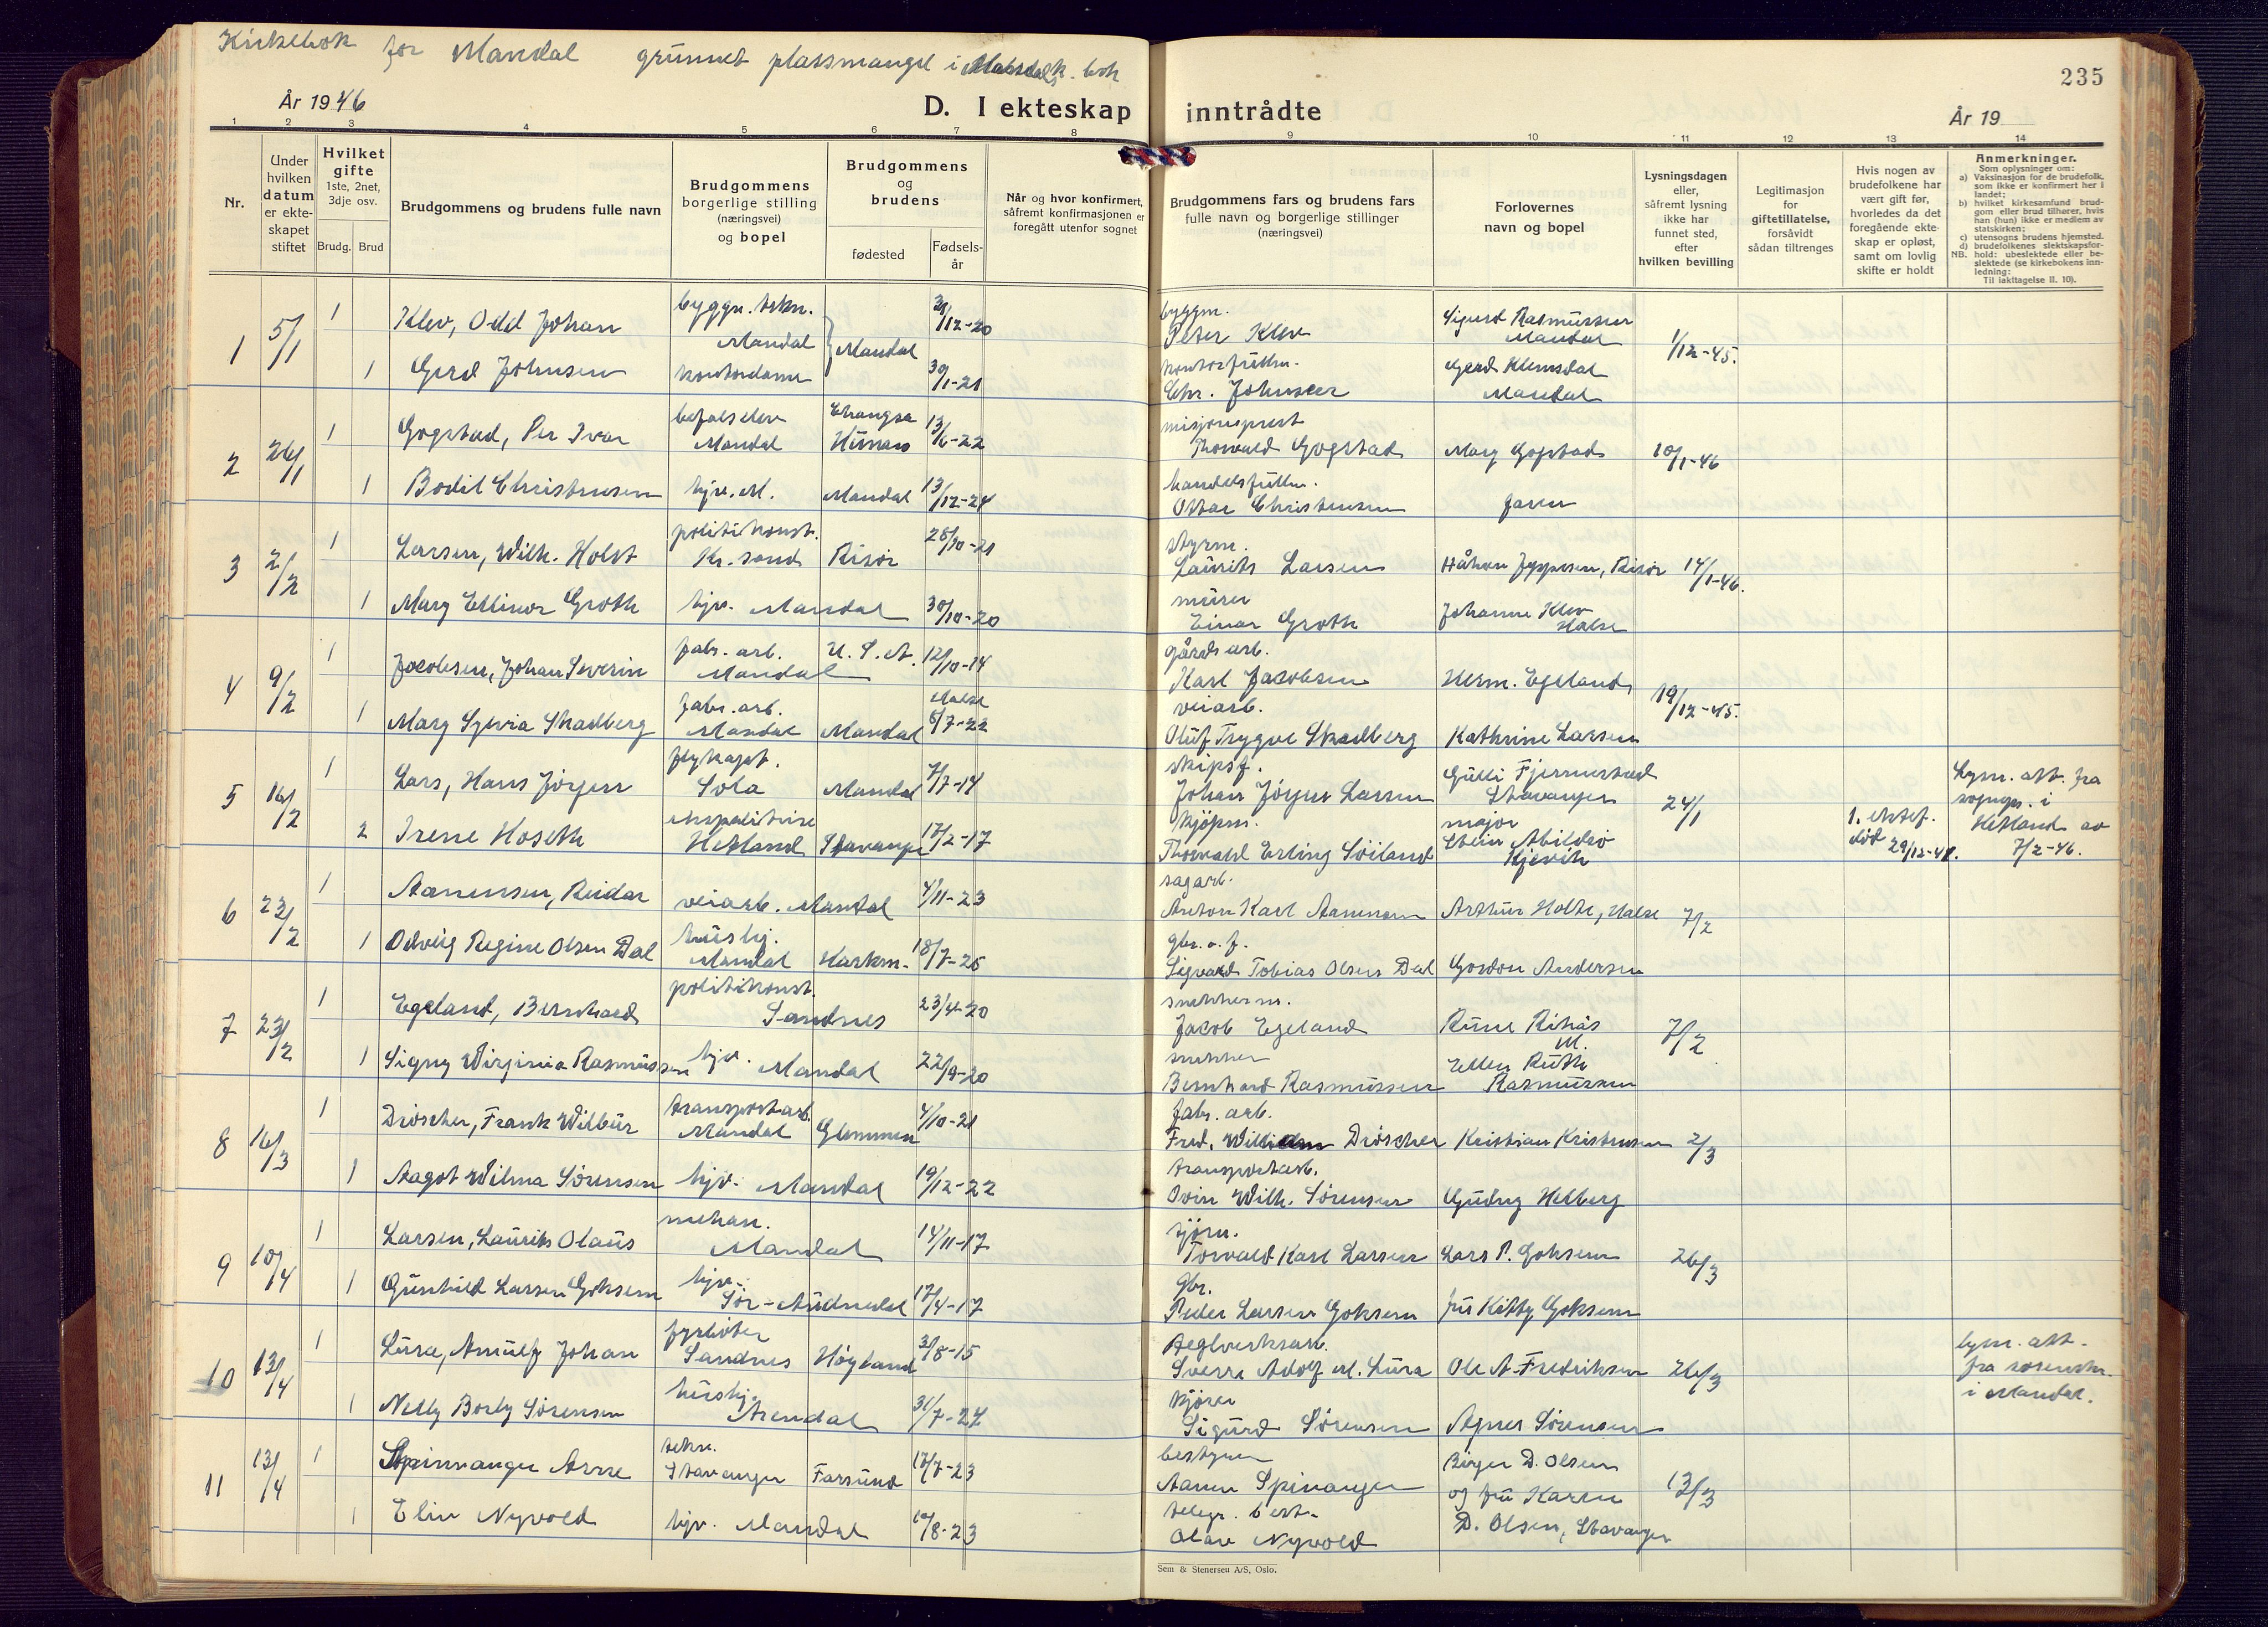 Kirkebok for Mandal grunnet plassmangel i Mandals k. bok
235
År 1946
D. I ekteskap inntrådte
År 19
1 2 3 4 5 6 7 8 9 10 11 12 13 14
Nr.
Under hvilken datum er ekteskapet stiftet
Hvilket gifte 1ste, 2net, 3dje osv.
Brudg. Brud
Brudgommens og brudens fulle navn
Brudgommens borgerlige stilling (næringsvei) og bopel
Brudgommens og brudens
fødested
Fødselsår
Når og hvor konfirmert, såfremt konfirmasjonen er foregått utenfor sognet
Brudgommens fars og brudens fars fulle navn og borgerlige stillinger (næringsvei)
Forlovernes navn og bopel
Lysningsdagen eller, såfremt lysning ikke har funnet sted, efter hvilken bevilling
Legitimasjon for giftetillatelse, forsåvidt sådan tiltrenges
Hvis nogen av brudefolkene har vært gift før, hvorledes da det foregående ekteskap er opløst, samt om lovlig skifte er holdt
Anmerkninger.
Som oplysninger om:
a) Vaksinasjon for de brudefolk, som ikke er konfirmert her i landet;
b) hvilket kirkesamfund brudgom eller brud tilhører, hvis han (hun) ikke er medlem av statskirken;
c) utensogns brudens hjemsted.
d) brudefolkenes slektskapsforhold: ubeslektede eller beslektede (se kirkebokens innledning:
NB.
Til iakttagelse II. 10).
1 5/1 1 Klev, Odd Johan byggn. tekn. Mandal } Mandal 31/12-20 byggm. Peter Klev Sigurd Rasmussen Mandal 1/12-45.
1 Gerd Johnsen kontordame 30/1-21 kontorfullm. Chr. Johnsen Gerd Klemsdal Mandal
2 26/1 1 Gogstad, Per Ivar befalselev Mandal Changsa Hunan 13/6-22 misjonsprest Thorvald Gogstad Mary Gogstad 10/1-46
1 Bodil Christensen hjv. M. Mandal 13/12-24 handelsfullm. Ottar Christensen faren
3 2/2 1 Larsen, Wilh. Holst politikonst. Kr. sand Risør 28/10-21 styrm. Laurits Larsen Håkon Jeppesen, Risør 14/1-46.
1 Mary Ellinor Groth hjv. Mandal 30/10-20 murer Einar Groth Johanne Klev Halse
4 9/2 1 Jacobsen, Johan Severin fabr. arb. Mandal U. S. A. 12/10-14 gårdsarb. Karl Jacobsen Herm. Egeland 19/12-45.
1 Mary Sylvia Skadberg fabr. arb. Mandal Mandal Halse 6/7-22 veiarb. Oluf Trygve Skadberg Kathrine Larsen
5 16/2 1 Lars, Hans Jörgen flykapt. Sola Mandal 7/7-14 skipsf. Johan Jörgen Larsen Gulli Fjermestad Stavanger 24/1 Lysn. att. fra sognepr. i Hetland av 7/2-46.
2 Irene Hoseth Hetland Stavanger 17/2-17 kjøpm. Thorvald Erling Söiland major Stein Abildsö Kjevik 1. ektef. død 29/12-41.
6 23/2 1 Aanensen, Reidar veiarb. Mandal 4/11-23 sagarb. Anton Karl Aanensen Arthur Holte, Halse 7/2
1 Odveig Regine Olsen Dal hushj. Mandal Harkm. 18/7-25 gbr. o. f. Sigvard Tobias Olsen Dal Gordon Andersen
7 23/2 1 Egeland, Bernhard politikonst. Sandnes 23/4-20 snekkerm. Jacob Egeland Rune Rihås M. 7/2
1 Signy Wirginia Rasmussen hjv. Mandal 22/9-20 snekker Bernhard Rasmussen Ellen Ruth Rasmussen
8 16/3 1 Dröscher, Frank Wilbur transportarb. Mandal Glemmen 4/10-21 fabr. arb. Fred. William Dröscher Kristian Kristensen 2/3
1 Aagot Wilma Sörensen hjv. Mandal 19/12-22 transportarb. Ovin Wilh. Sörensen Gudny Helberg
9 10/4 1 Larsen, Laurits Olaus mekan. Mandal 14/11-17 sjøm. Torvald Karl Larsen Lars P. Goksem 26/3
1 Gunhild Larsen Goksem hjv. Sör-Audnedal 17/4-17 gbr. Peder Larsen Goksem fru Kitty Goksem
10 13/4 1 Lura, Arnulf Johan fyrböter Sandnes Høyland 3/8-15 teglverksarb. Sverre Adolf M. Lura Ole A. Fredriksen 26/3 lysn. att. fra sorenskr. i Mandal.
1 Nelly Borly Sörensen hushj. Arendal 31/7-24 kjörer Sigurd Sörensen Agnes Sörensen
11 13/4 1 Spinnanger Arne tekn. Stavanger Farsund 17/7-23 bestyrer Aanen Spinanger Birger D. Olsen 13/3
1 Elin Nyvold hjv. Mandal 10/8-23 telegr. best. Olav Nyvold og fru Karen D. Olsen, Stavanger
Sem & Stenersen A/S, Oslo.